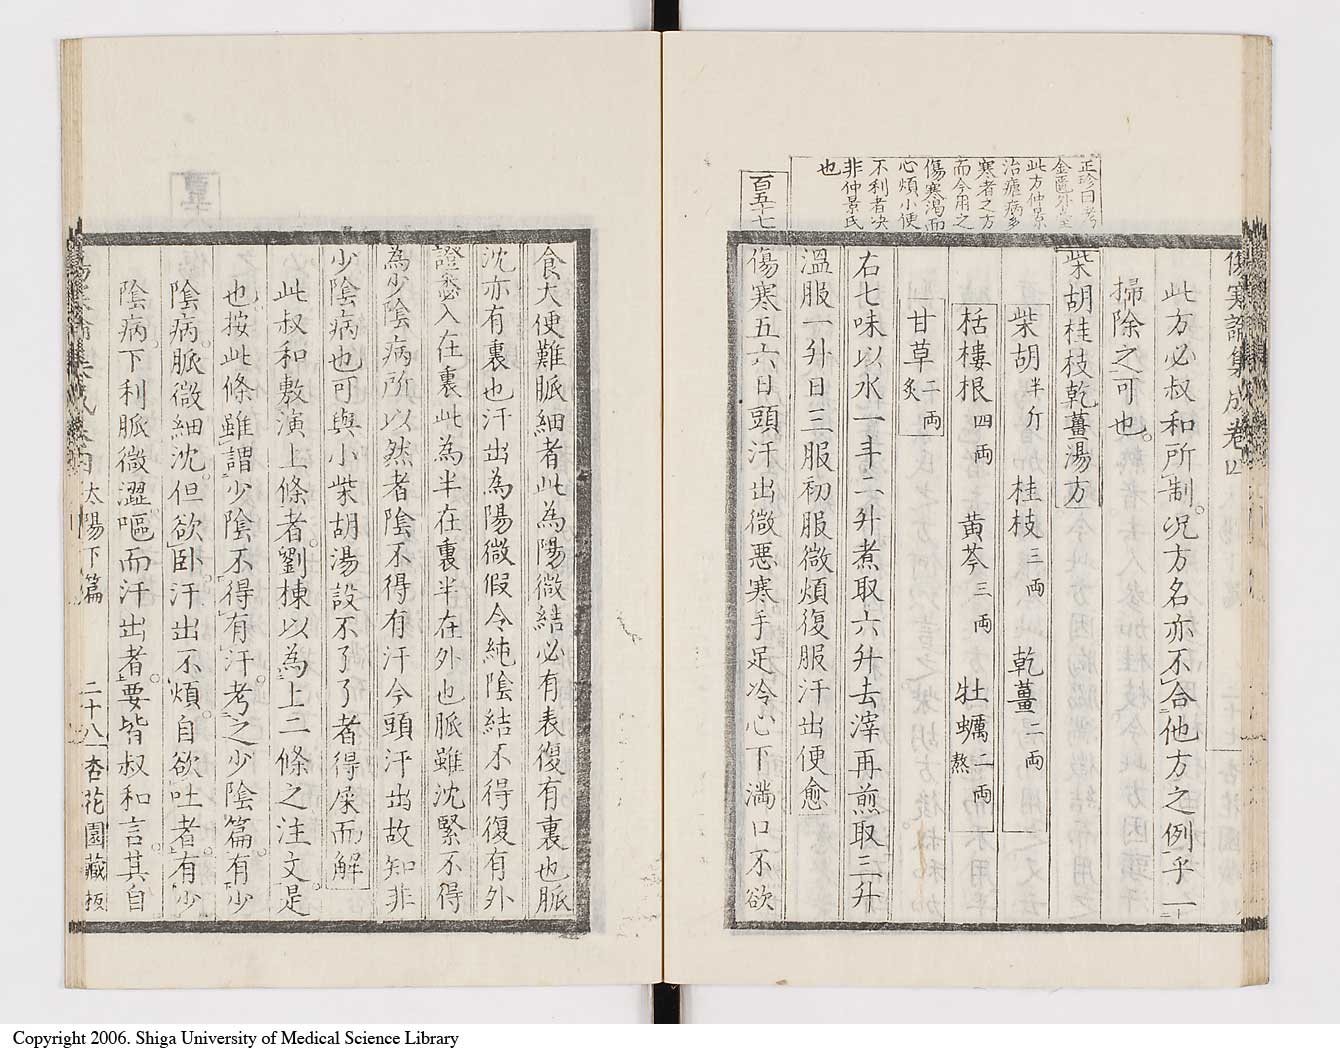 傷寒論集成卷四
此方必叔和所制。况方名亦不合他方之例乎一一
掃除之可也。
柴胡桂枝乾薑湯方
柴胡半斤 桂枝三両 乾薑二両
栝樓根四両 黄芩三両 牡蠣二両熬
甘草二両炙
右七味以水一斗二升煮取六升去滓再煎取三升
溫服一升日三服初服微煩復服汗出便愈
傷寒五六日頭汗出微惡寒手足冷心下満口不欲
正珍曰考
金匱外臺
此方仲景
治瘧病多
寒者之方
而今用之
傷寒渴而
心煩小便
不利者决
非仲景氏
也
百五十七
食大便難脈細者此為陽微結必有表復有裏也脈
沈亦有裏也汗出為陽微假令純陰結不得復有外
證悉入在裏此為半在裏半在外也脈雖沈緊不得
為少陰病所以然者陰不得有汗今頭汗出故知非
少陰病也可與小柴胡湯設不了了者得屎而解
此叔和敷演上條者。劉棟以為上二條之注文是
也。按此條雖謂少陰不得有汗。考之少陰篇有少
陰病。脈微細沈。但欲卧。汗出不煩。自欲吐者。有少
陰病。下利脈微澀。嘔而汗出者。要皆叔和言。其自
傷寒論集成卷四 太陽下篇 二十八 杏花園藏板
Copyright 2006. Shiga University of Medical Science Library